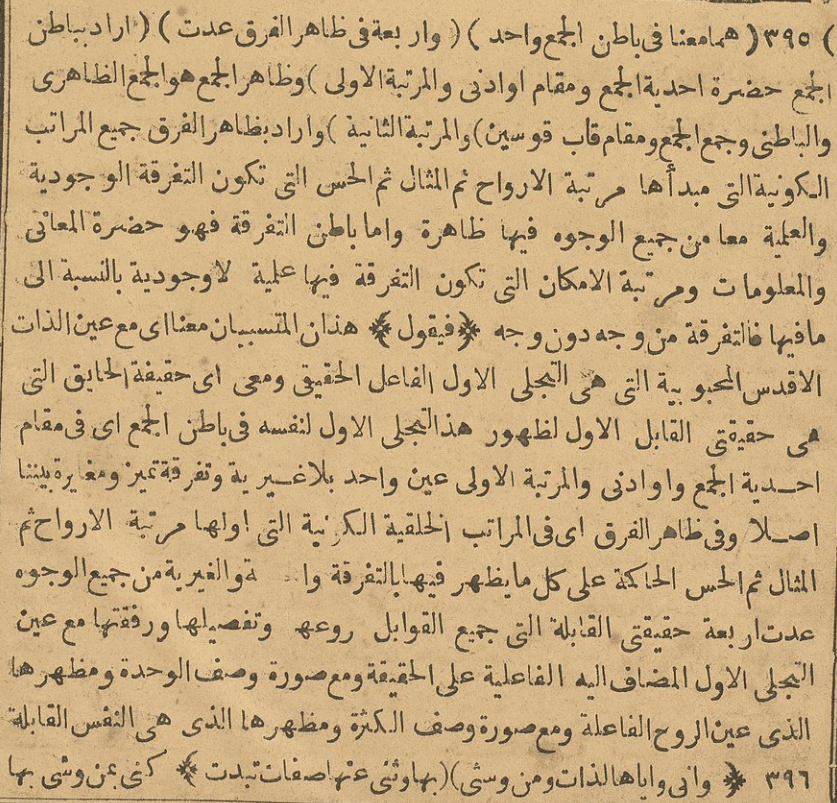 ) ٣٩٥ ( هما معنا فى باطن الجمع واحد ) ( واربعة فى ظاهر الفرق عدت ) ( اراد بباطن
الجمع حضرة احدية الجمع ومقام اوادنى والمرتبة الاولى ) وظاهر الجمع هو الجمع الظاهرى
والباطنى وجمع الجمع ومقام قاب قوسين ) والمرتبة الثانية ) واراد بظاهر الفرق جميع المراتب
الكونية التى مبدأها مرتبة الارواح ثم المثال ثم الحس التى تكون التفرقة الوجودية
والعلمية معا من جميع الوجوه فيها ظاهرة واما باطن التفرقة فهو حضرة المعانى
والمعلومات ومرتبة الامكان التى تكون التفرقة فيها علمية لاوجودية بالنسبة الى
مافيها فالتفرقة من وجه دون وجه ﴿ فيقول ﴾ هذان المتسببان معنا اى مع عين الذات
الاقدس المحبوبية التى هى التجلى الاول الفاعل الحقيقى ومعى اى حقيقة الحايق التى
هى حقيقتى القابل الاول لظهور هذا التجلى الاول لنفسه فى باطن الجمع اى فى مقام
احدية الجمع واوادنى والمرتبة الاولى عين واحد بلاغيرية وتفرقة تميز ومغايرة بيننا
اصلا وفى ظاهر الفرق اى فى المراتب الخلقية الكونية التى اولها مرتبة الارواح ثم
المثال ثم الحس الحاكمة على كل ما يظهر فيها بالتفرقة والغيرية من جميع الوجوه
عدت اربعة حقيقتى القابلة التى جميع القوابل وتفصيلها ورفقتها مع عين
التجلى الاول المضاف اليه الفاعلية على الحقيقة ومع صورة وصف الوحدة ومظهرها
الذى عين الروح الفاعلة ومع صورة وصف الكثرة ومظهرها الذى هى النفس القابلة
٣٩٦ ﴿ وانى واياها لذات ومن وشى ) ( بها وثنى عنها صفات تبدت ﴾ كنى بمن وشى بها